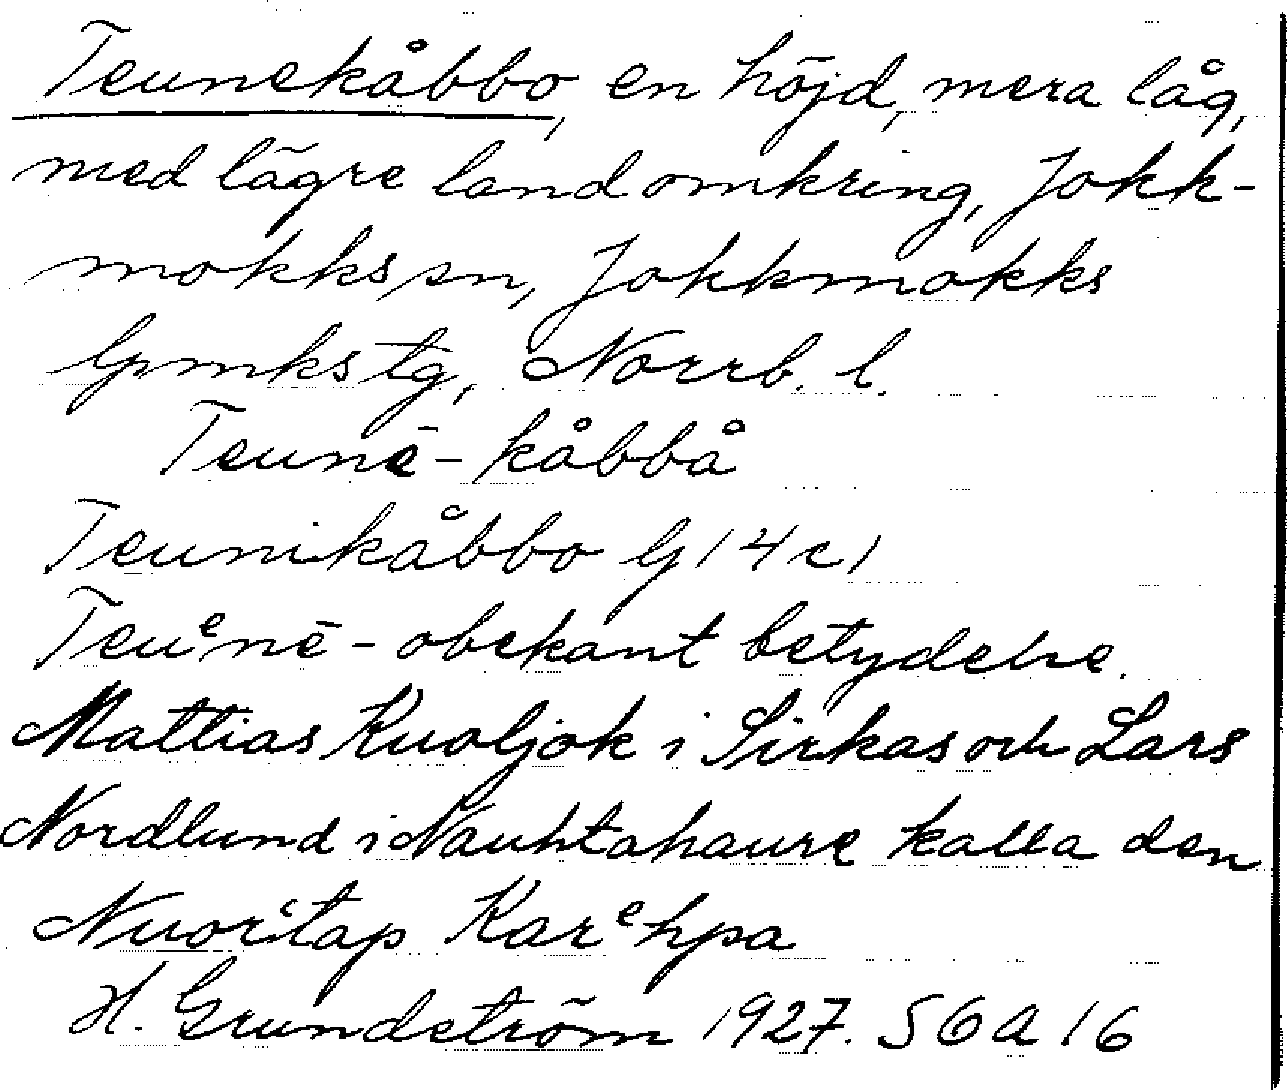 Teunekåbbo, en höjd, mera låg,
med lägre land omkring, Jokk-
mokks sn, Jokkmokks
lpmkstg, Norrb. l.
Teunē-kåbbå
Teunikåbbo G(4c)
Teuᵉnē-obekant betydelse.
Mattias Kuoljok i Sirkas och Lars
Nordlund i Nauhtahaure kalla den
Nuorʿtap Karᵉhpa
H. Grundström 1927. SGA 16